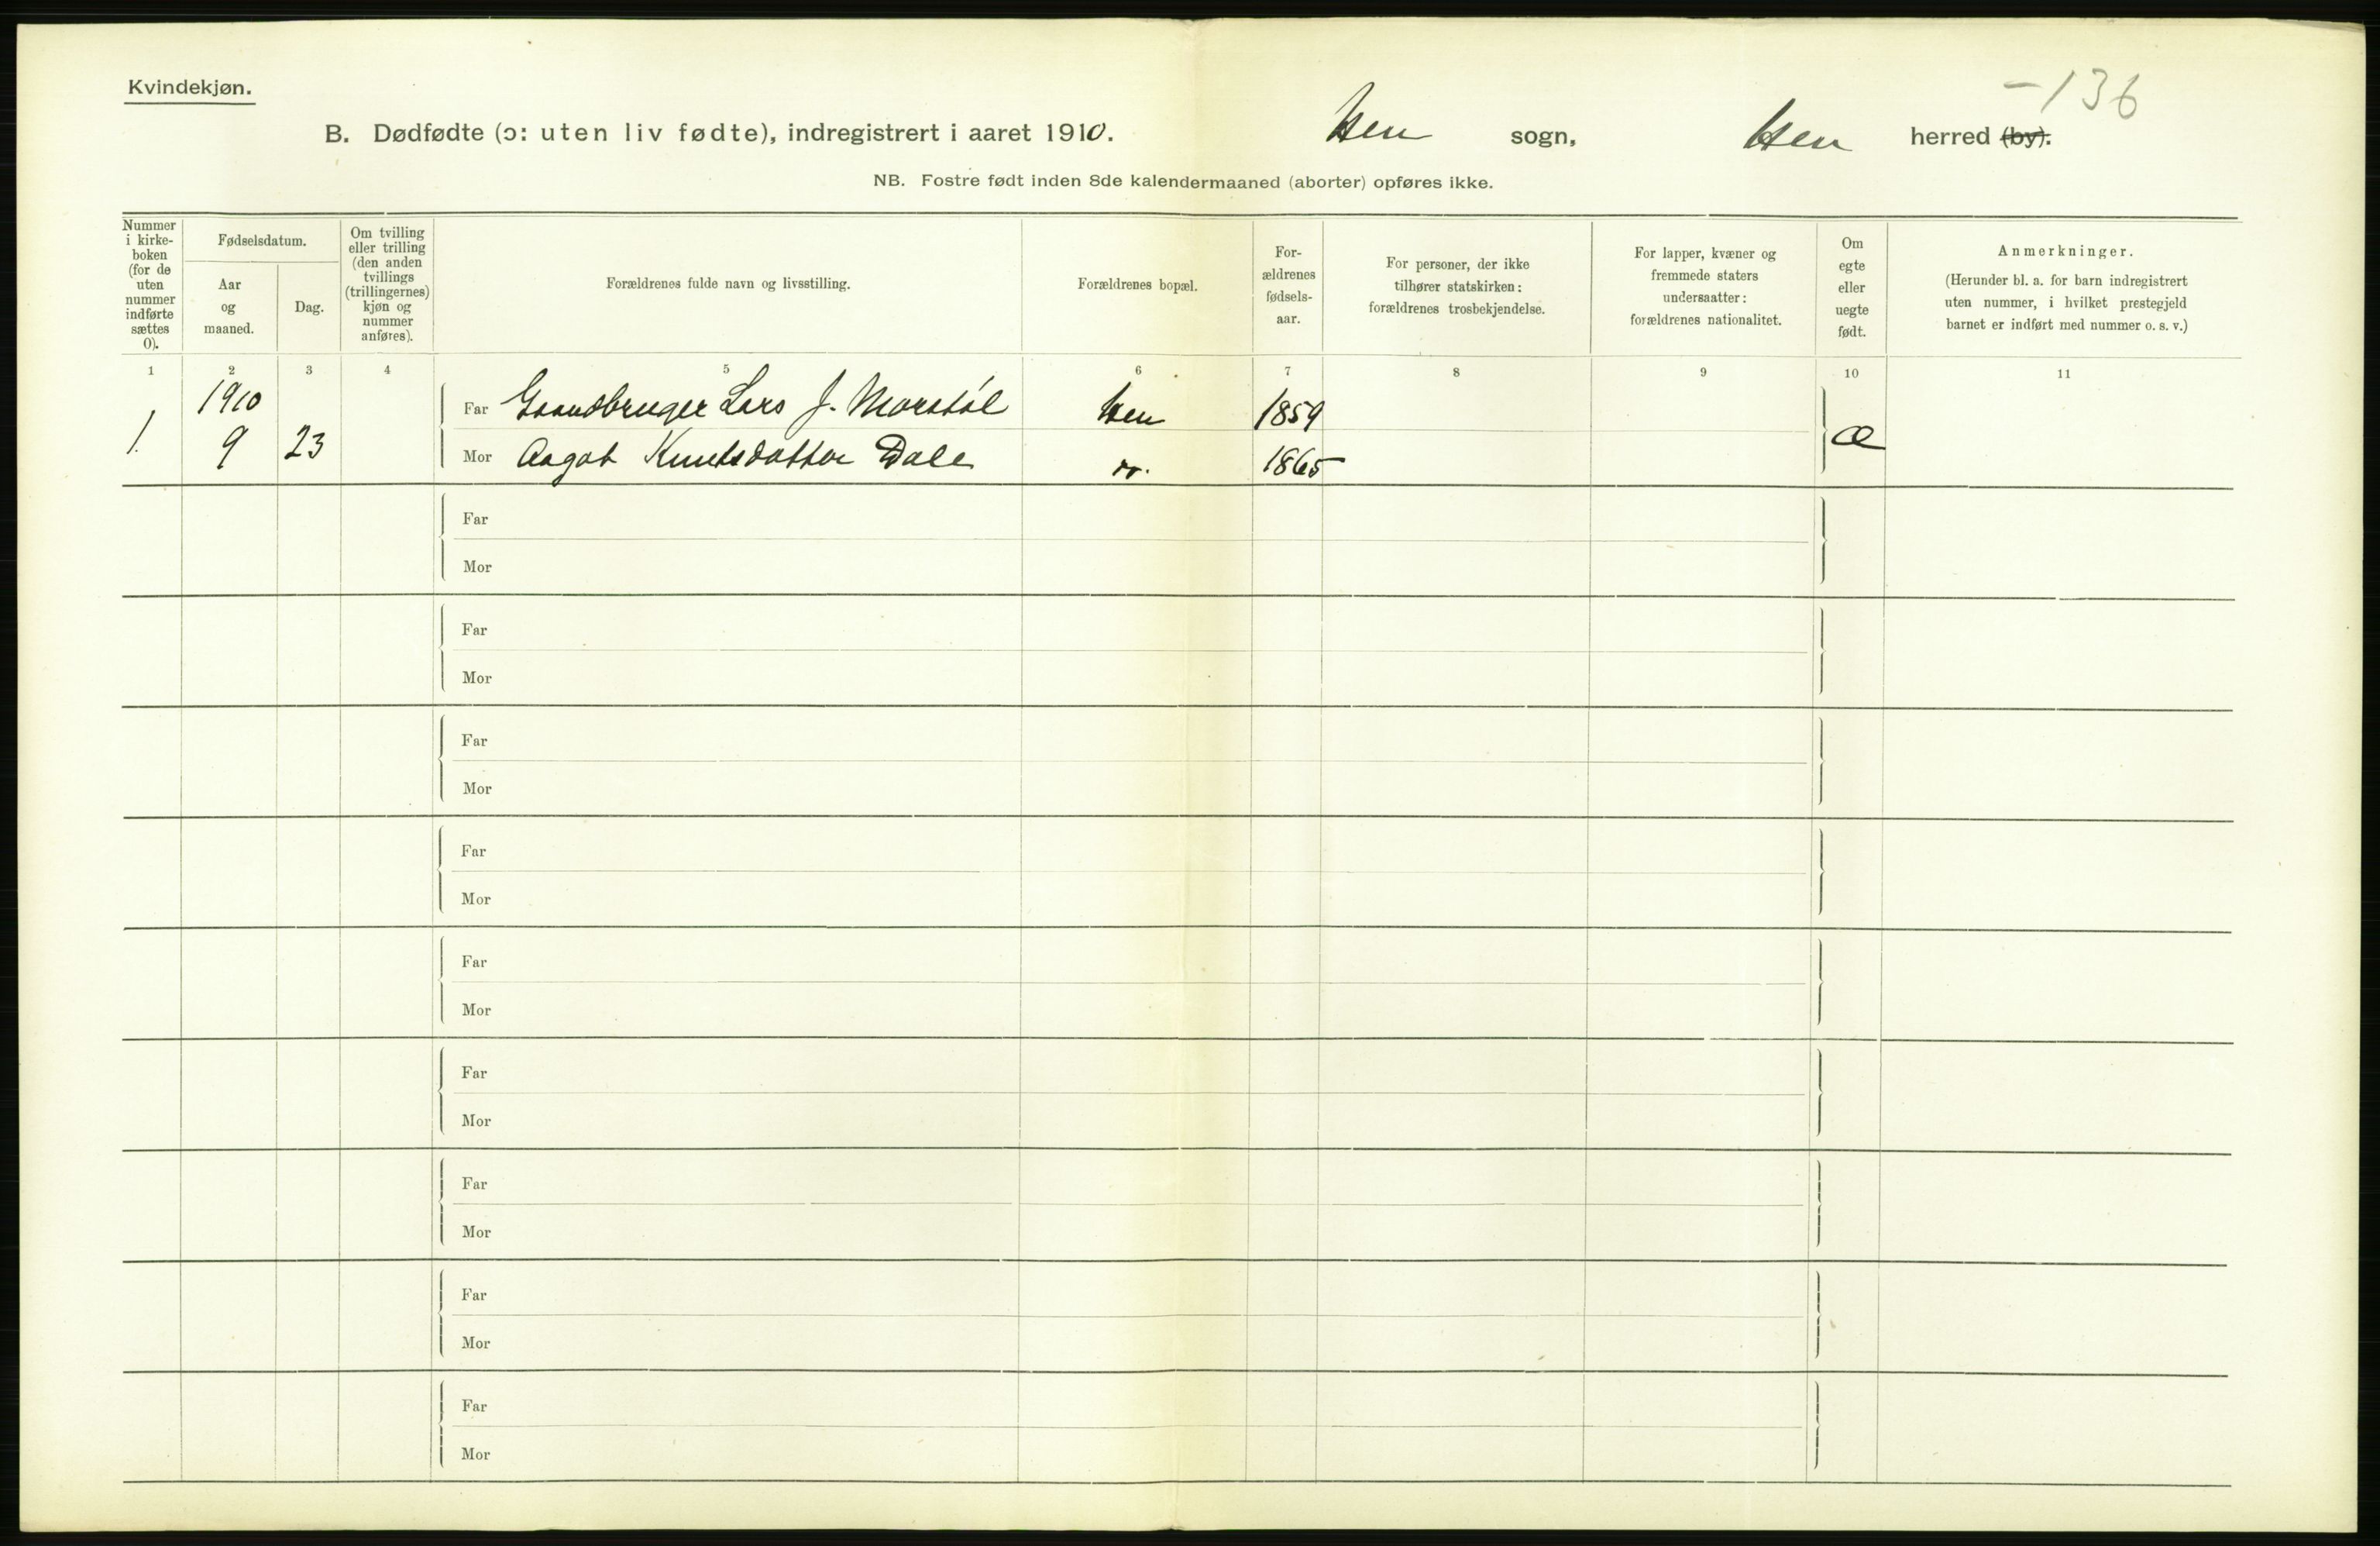 Kvindekjøn.
-136
B. Dødfødte (ɔ: uten liv fødte), indregistrert i aaret 1910. Hen sogn, Hen herred (by).
NB. Fostre født inden 8de kalendermaaned (aborter) opføres ikke.
Nummer i kirke-boken (for de uten nummer indførte sættes 0).
Fødselsdatum.
Aar og maaned.
Dag.
Om tvilling eller trilling (den anden tvillings (trillingernes) kjøn og nummer anføres).
Forældrenes fulde navn og livsstilling.
Forældrenes bopæl.
For-ældrenes fødsels-aar.
For personer, der ikke tilhører statskirken: forældrenes trosbekjendelse.
For lapper, kvæner og fremmede staters undersaatter: forældrenes nationalitet.
Om egte eller uegte født.
Anmerkninger.
(Herunder bl. a. for barn indregistrert uten nummer, i hvilket prestegjeld barnet er indført med nummer o. s. v.)
1 2 3 4 5 6 7 8 9 10 11
1910
Far Gaardbruger Lars J. Morstøl Hen 1859
1. 9 23 Æ
Mor Aagot Knutsdatter Dale " 1865
Far
Mor
Far
Mor
Far
Mor
Far
Mor
Far
Mor
Far
Mor
Far
Mor
Far
Mor
Far
Mor